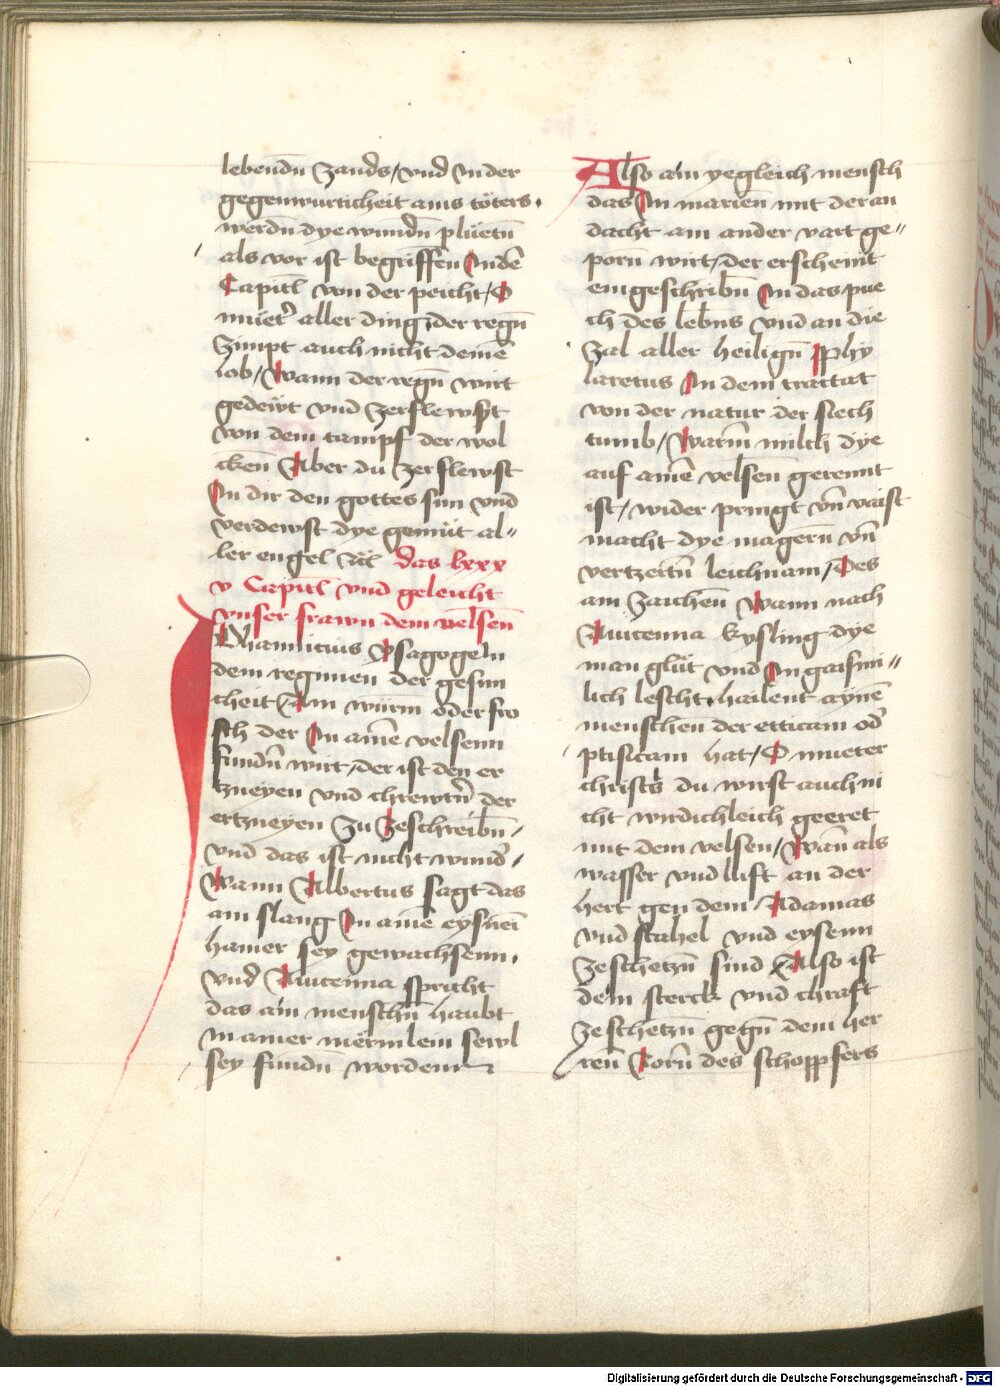 lebendn̄ Zands / vnd In der
gegenwurticheit ains töters.
werdn̄ dye wundn̄ plüetn̄
als vor ist begriffen In dē
Capitl von der peicht / O
mūet' aller ding / der regn̄
Zimpt auch nicht deinē
lob / Wann der regn̄ wirt
gedeẅt vnd Zerflewst
von dem tampf der wol
cken Aber du Zerflewst
In dir den gottes sun vnd
verdewst dye gemüt al=
ler engel das lxxx
v Capitl vnd geleicht
vnser frawn dem velsen̄
Johannicius ysagoge In
dem regimen der gesun
cheit Ain würm oder fro
sch der In ainē velsenn
fundn̄ wirt / der ist den er
tzneyen vnd chrewtn̄ der
ertzneyen Zu Zeschreibn̄ /
vnd das ist nicht wund' /
Wann Albertus sagt das
ain slang In ainē eysnei
hamer sey gewachsenn.
vnd Auicenna spricht
das ain menschn̄ haubt
In ainer mermlein sewl
sey fundn̄ worden
Also ain yegleich mensch
das In marien mit der an
dacht ain ander vart ge=
porn wirt / der erscheint
eingeschribn̄ In das pue
ch des lebns vnd an die
Zal aller heilign̄ Phy
laretus In dem tractat
von der natur der siech
tumb / Warm̄ milch dye
auf ainē velsen gerennt
ist / wider pringt vn̄ vaist
macht dye magern̄ vn̄
vertzertn̄ leichnam / Des
ain Zaichen Wann nach
Auicenna kysling dye
man glüt vnd In gaismi=
lich lescht / hailent aynē
menschen der etticam od'
ptisicam hat / O mueter
christs du wirst auch ni
cht wirdichleich geeret
mit dem velsen / Wan̄ als
wasser vnd luft an der
hert gen dem Adamas
vnd stahel vnd eysenn
Zeschetzn̄ sind Also ist
dein sterck vnd chraft
Zeschetzn̄ gegn̄ dem her
ren Zorn̄ des schoppfers
Digitalisierung gefördert durch die Deutsche Forschungsgemeinschaft - DFG